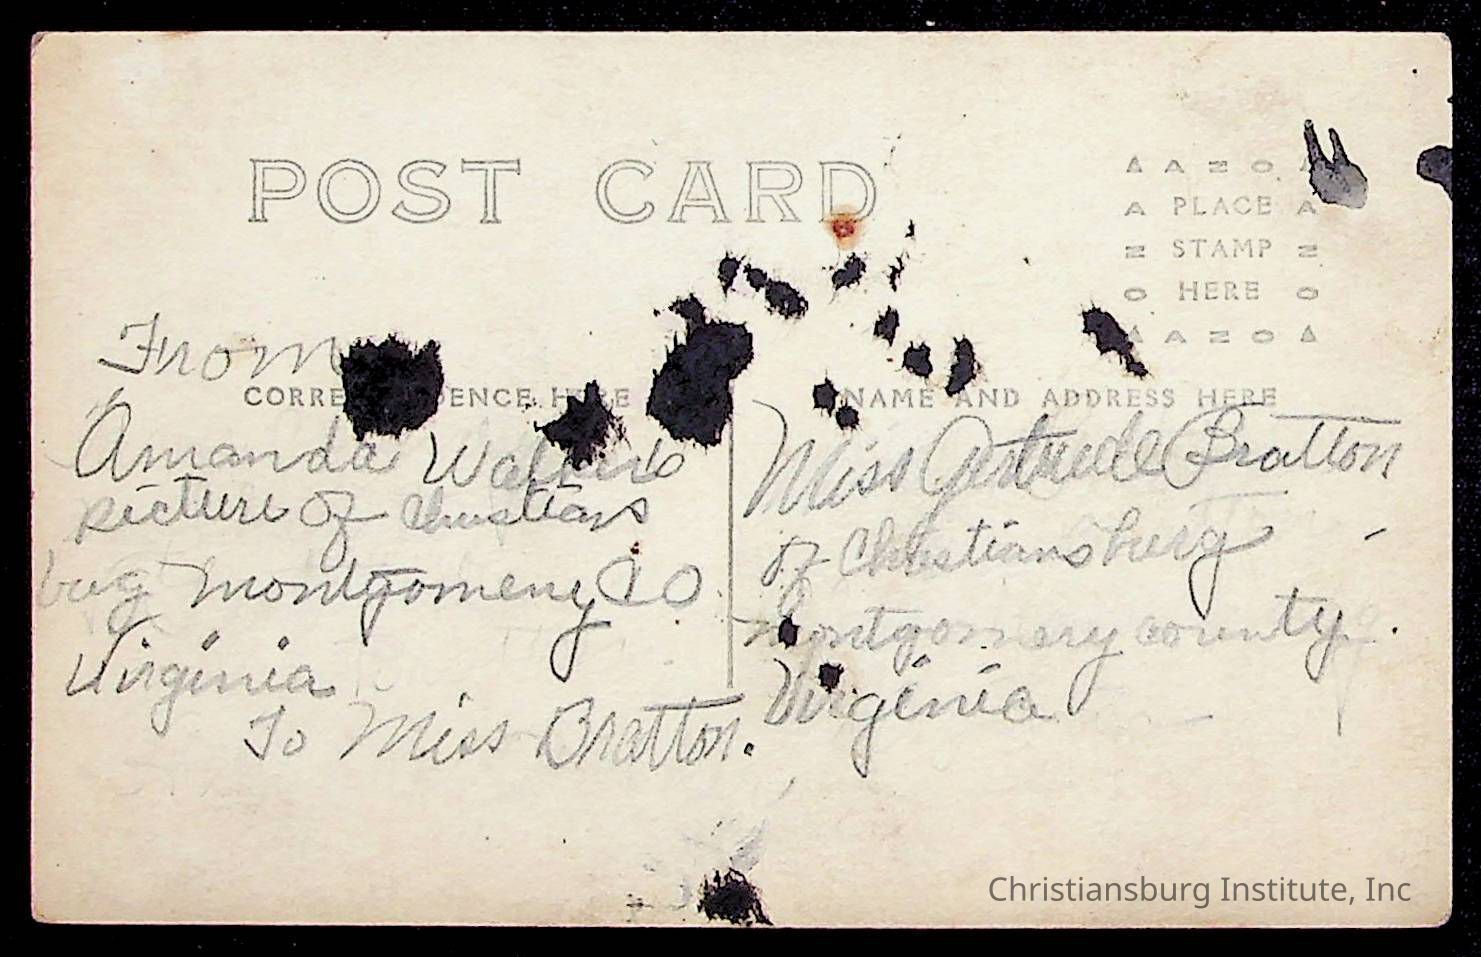 POST CARD
AZO
PLACE
STAMP
HERE
AZO
From
CORRE DENCE HERE
Amanda
picture of Christians
burg Montgomery CO
Virginia
To Miss Bratton.
NAME AND ADDRESS HERE
Miss Gertrude Bratton
of Christiansburg
Montgomery county.
Virginia
Christiansburg Institute, Inc